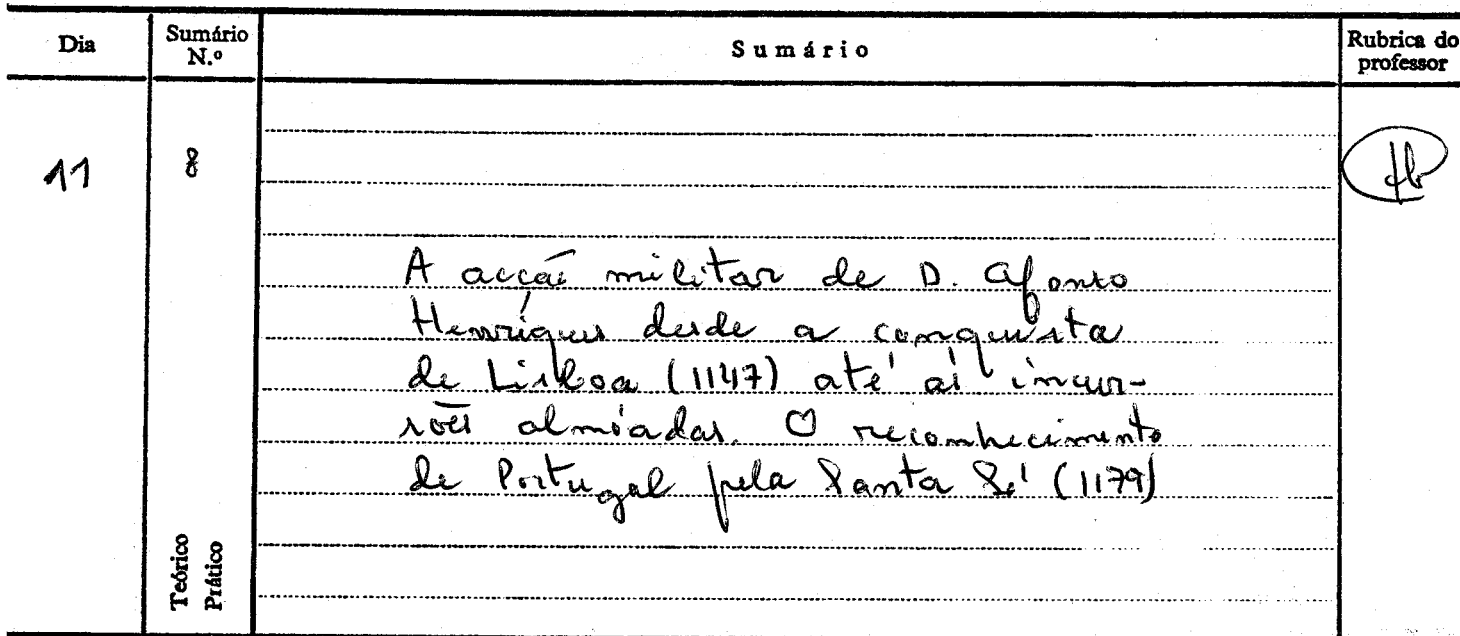 Dia
Sumário N.º
Sumário
Rubrica do professor
11
8
A acção militar de D. Afonso
Henriques desde a conquista
de Lisboa (1147) até às incur-
sões almóadas. O reconhecimento
de Portugal pela Santa Sé (1179)
Teórico
Prático